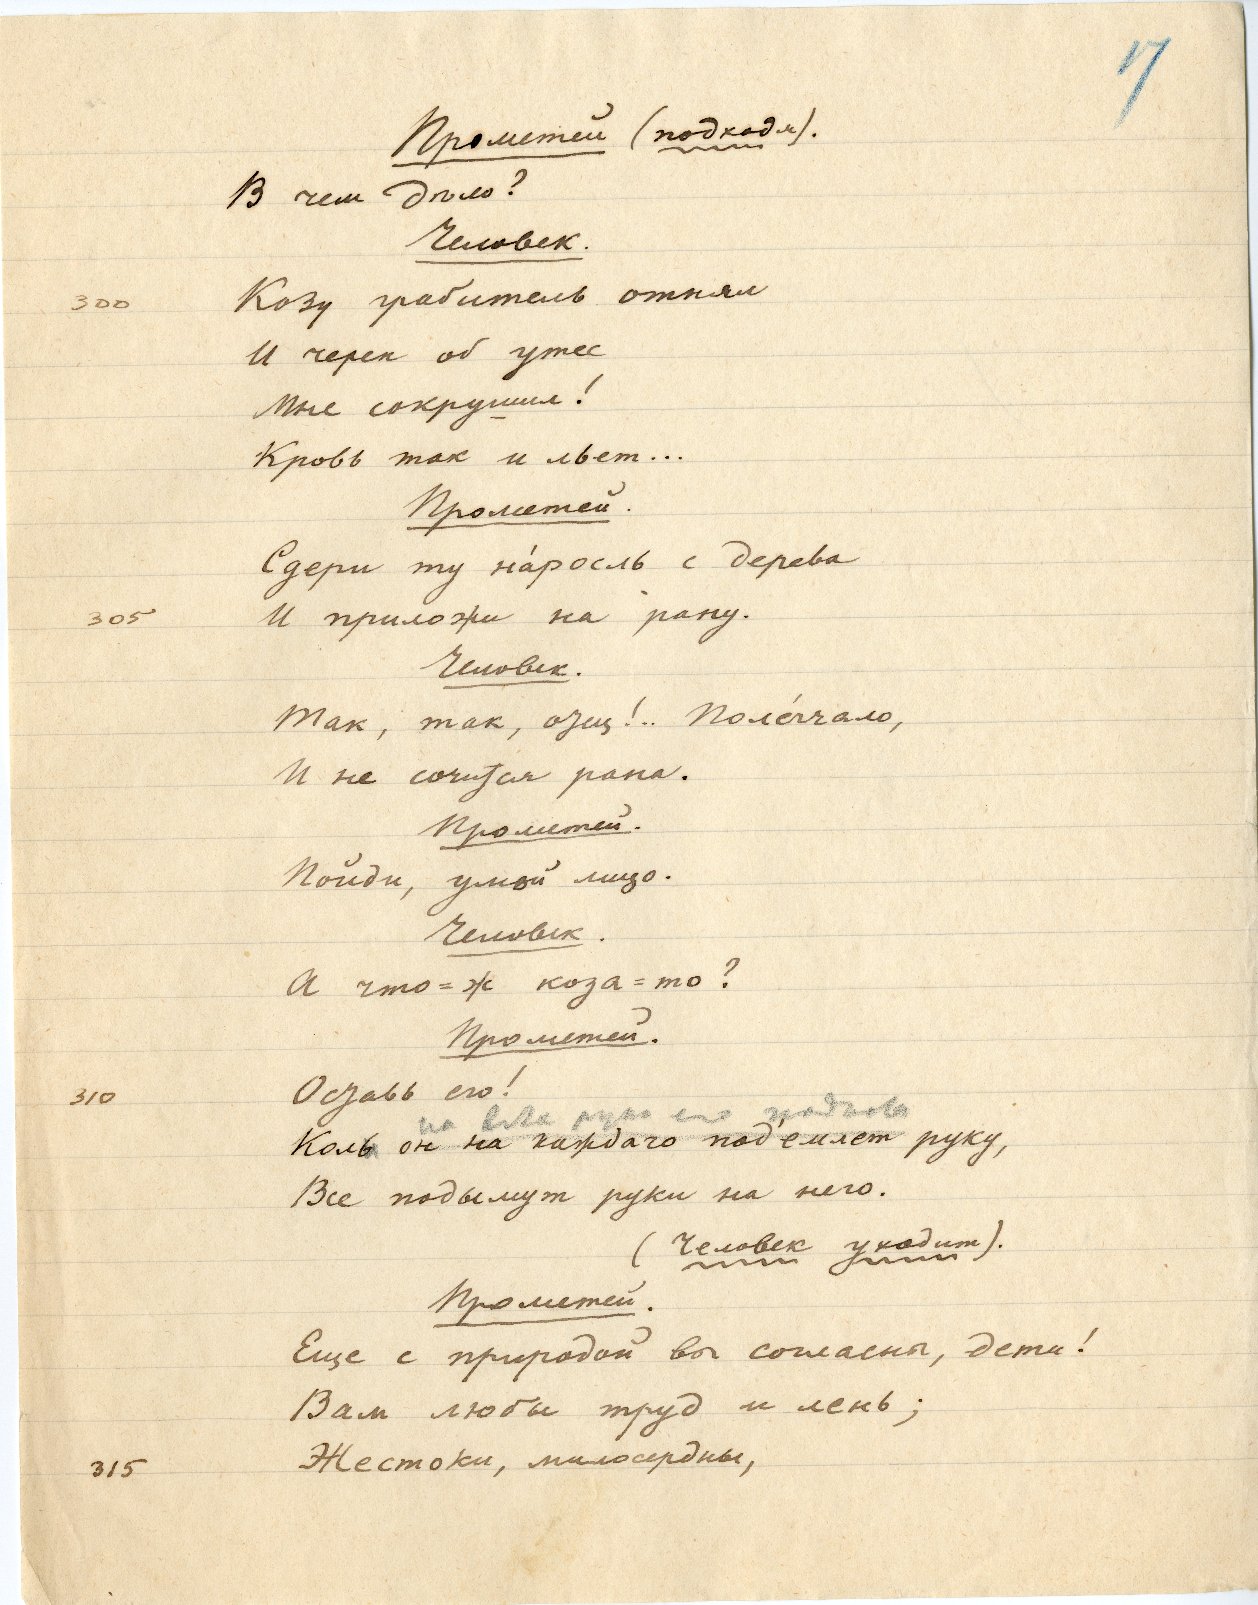 17
Прометей (подходя).
В чем дѣло?
Человек.
300 Козу грабитель отнял
И череп об утес
Мне сокрушил!
Кровь так и льет...
Прометей.
Сдери ту на́росль с дерева
305 И приложи на рану.
Человек.
Так, так, отец!.. Поле́гчало,
И не сочится рана.
Прометей.
Пойди, умой лицо.
Человек.
А что=ж коза=то?
Прометей.
310 Оставь его!
на всех рука его
Коль он на каждаго под'емлет руку,
Все подымут руки на него.
(Человек уходит).
Прометей.
Еще с природой вы согласны, дети!
Вам любы труд и лень;
315 Жестоки, милосердны,